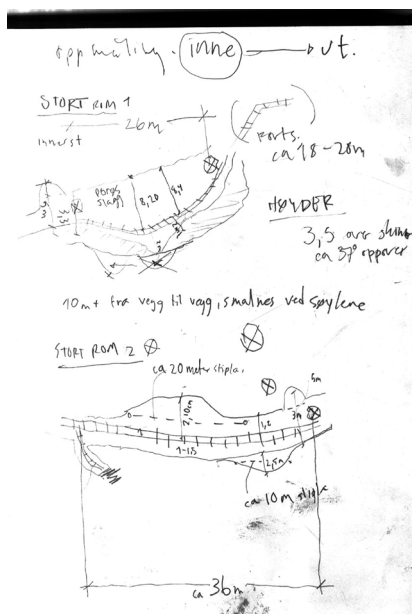 oppmåling. inne → ut.
STORT ROM 1
26m
innerst
Forts.
ca 18-20m
8,20
8,4
3,3
HØYDER
3,5 over skinne
ca 37° oppover
10m+ fra vegg til vegg, smalnes ved søylene
STORT ROM 2
ca 20 meter stipla.
5m
2,10m
1,8
3m
1-1,5
2,5m
ca 10m stipla
ca 36m